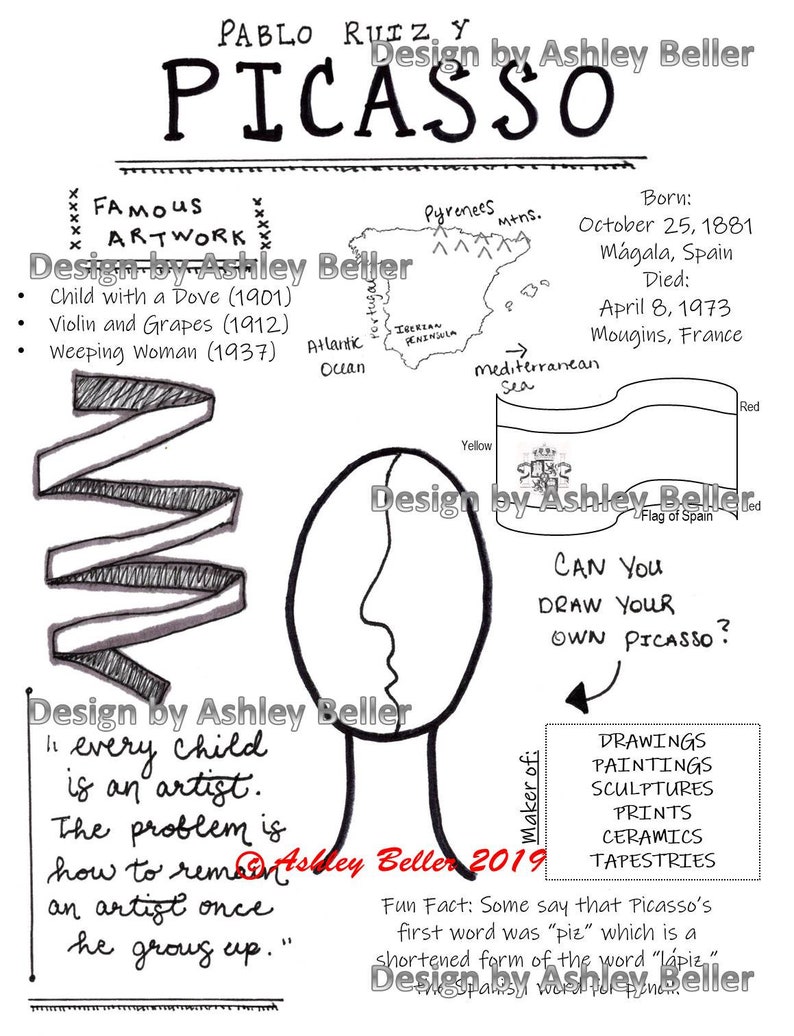 PABLO RUIZ Y
PICASSO
Design by Ashley Beller
FAMOUS
ARTWORK
Design by Ashley Beller
• Child with a Dove (1901)
• Violin and Grapes (1912)
• Weeping Woman (1937)
Pyrenees Mtns.
Portugal
IBERIAN
PENINSULA
Atlantic
Ocean
Mediterranean
Sea
Born:
October 25, 1881
Mágala, Spain
Died:
April 8, 1973
Mougins, France
Red
Yellow
Design by Ashley Beller
Red
Flag of Spain
CAN YOU
DRAW YOUR
OWN PICASSO?
Design by Ashley Beller
"every child
is an artist.
The problem is
how to remain
an artist once
he grows up."
Maker of:
DRAWINGS
PAINTINGS
SCULPTURES
PRINTS
CERAMICS
TAPESTRIES
© Ashley Beller 2019
Fun Fact: Some say that Picasso's
first word was "piz" which is a
shortened form of the word "lápiz,"
the Spanish word for pencil.
Design by Ashley Beller